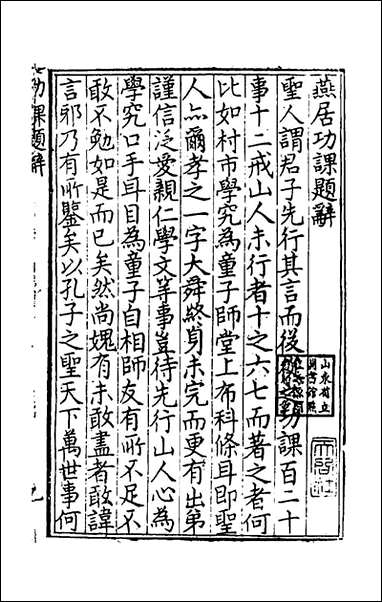 燕居功課題辭
聖人謂君子先行其言而後從之今功課百二十
事十二戒山人未行者十之六七而著之者何
比如村市學究為童子師堂上布科條耳即聖
人亦爾孝之一字大舜終身未完而更有出第
謹信泛愛親仁學文等事豈待先行山人心為
學究口手耳目為童子自相師友有所不足不
敢不勉如是而已矣然尚媿有未敢盡者敢諱
言邪乃有所鑒矣以孔子之聖天下萬世事何
山東省立
圖書館點
功課題辭